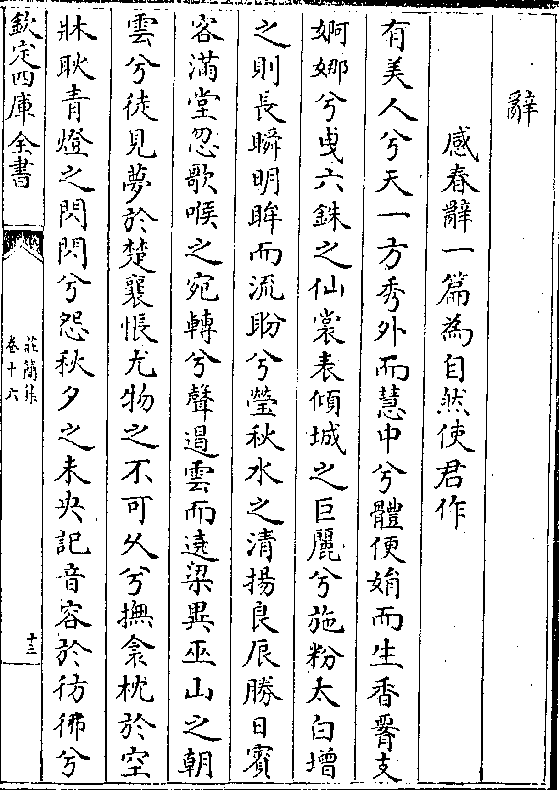 辭
感春辭一篇為自然使君作
有美人兮天一方秀外而慧中兮體便娟而生香臀支
婀娜兮曵六銖之仙裳表傾城之巨麗兮施粉太白增
之則長瞬明眸而流盼兮瑩秋水之清揚良辰勝日賓
客滿堂忽歌喉之宛轉兮聲遏雲而遶梁異巫山之朝
雲兮徒見夢於楚襄悵尤物之不可久兮撫衾枕於空
牀耿青燈之閃閃兮怨秋夕之未央記音容於彷彿兮
欽定四庫全書
莊簡集
卷十六
十三